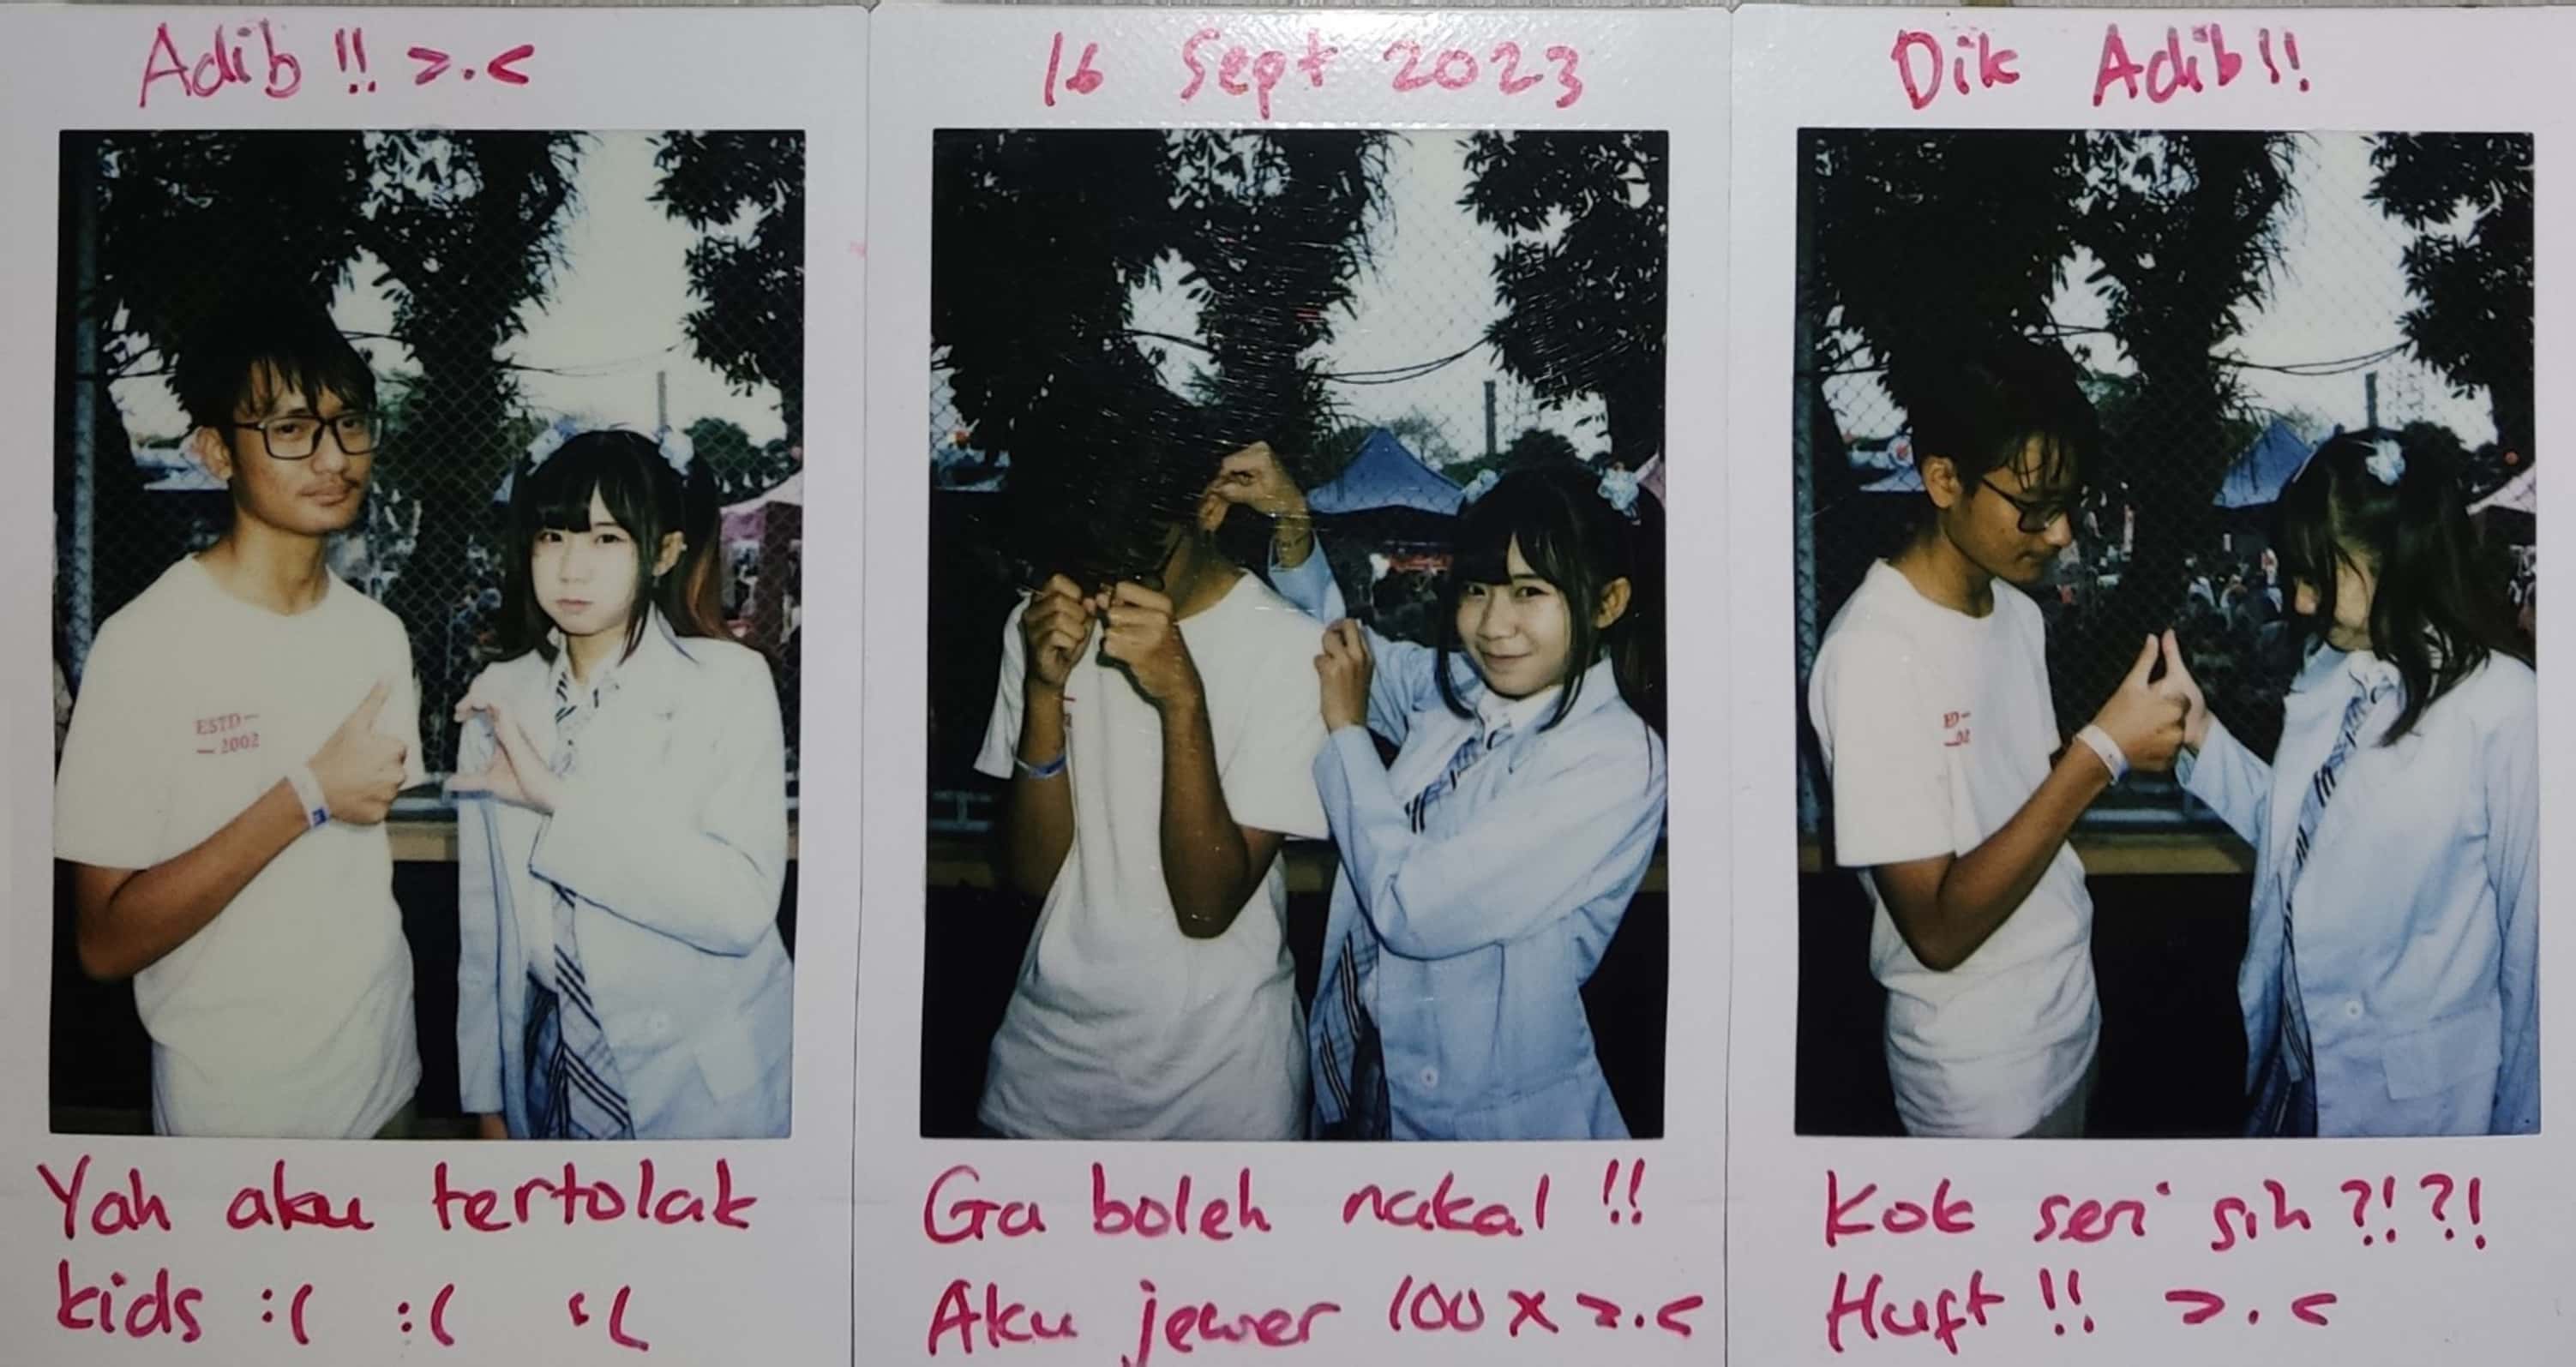 Adib !! >.<
ESTD —
— 2002
Yah aku tertolak
kids :( :( :(
16 Sept 2023
Ga boleh nakal !!
Aku jewer 100x >.<
Dik Adib !!
Kok seri sih ?!?!
Huft !! >.<